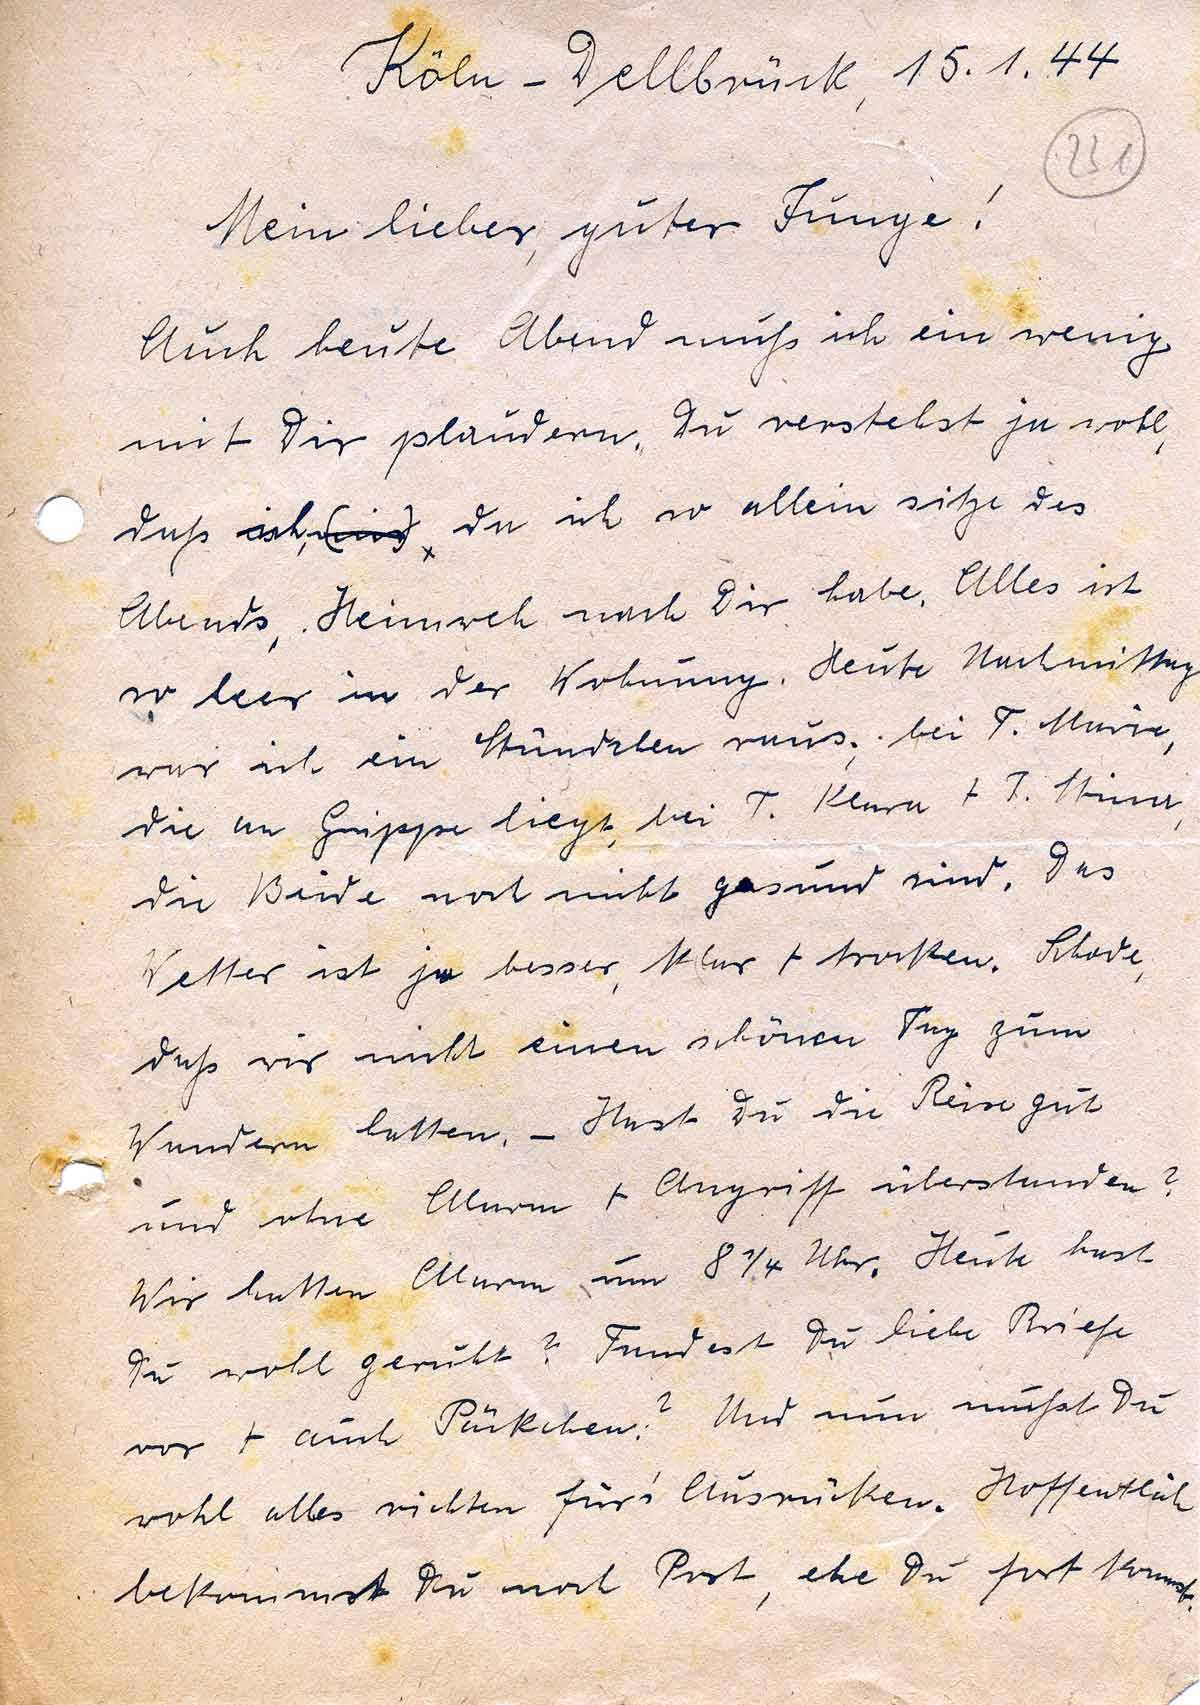 Köln-Dellbrück, 15.1.44
231
Mein lieber, guter Junge!
Auch heute Abend muß ich ein wenig
mit Dir plaudern. Du verstehst ja wohl,
daß ich, (in) da ich so allein sitze des
Abends, Heimweh nach Dir habe. Alles ist
so leer in der Wohnung. Heute Nachmittag
war ich ein Stündchen raus, bei T. Maria,
die an Grippe liegt, bei T. Klara + T. Stina,
die Beide noch nicht gesund sind. Das
Wetter ist ja besser, klar + trocken. Schade,
daß wir nicht einen schönen Tag zum
Wandern hatten. - Hast Du die Reise gut
und ohne Alarm + Angriff überstanden?
Wir hatten Alarm um 8 1/4 Uhr. Heute hast
Du wohl geruht? Fandest Du liebe Briefe
vor + auch Päckchen? Und nun mußt Du
wohl alles richten für's Ausrücken. Hoffentlich
bekommst Du noch Post, ehe Du fort kommst.